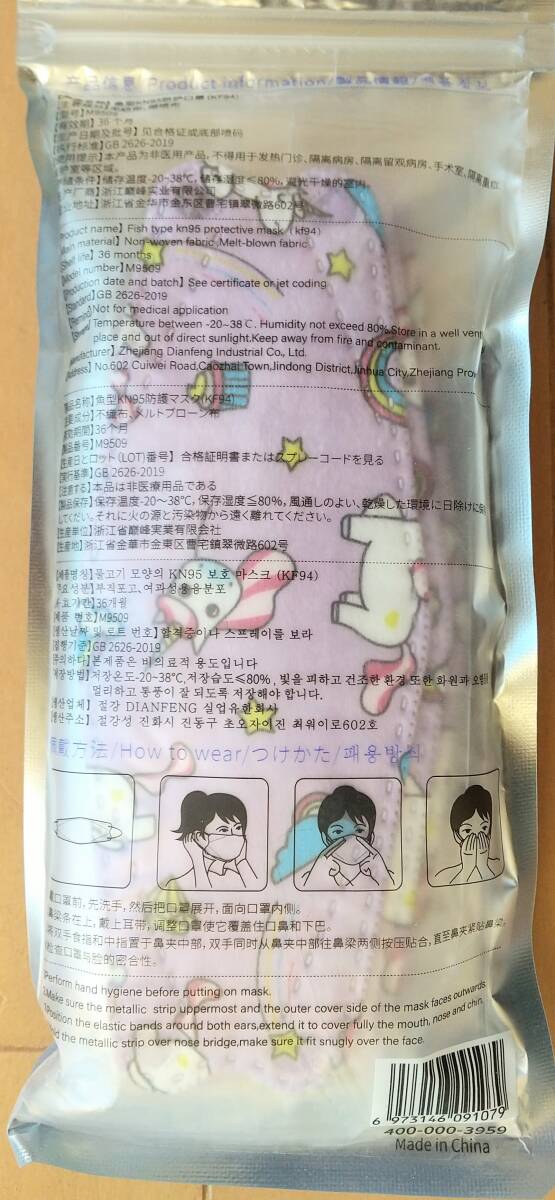 产品信息 Product information/製品情報/제품정보
鱼型KN95防护口罩(KF94)
M9509
36个月
产日期及批号】见合格证或底部喷码
执行标准】GB 2626-2019
本产品为非医用产品，不得用于发热门诊、隔离病房、隔离留观病房、手术室、隔离重症
等区域。
储存温度-20~38℃，储存湿度≤80%，避光干燥的室内。
产厂商】浙江巅峰实业有限公司
业地址】浙江省金华市金东区曹宅镇翠微路602号
Product name】Fish type kn95 protective mask（kf94）
Main material】Non-woven fabric,Melt-blown fabric
Shelf life】36 months
Model number】M9509
Production date and batch】See certificate or jet coding
Standard】GB 2626-2019
Not for medical application
Temperature between -20~38℃. Humidity not exceed 80%,Store in a well vent
place and out of direct sunlight.Keep away from fire and contaminant.
Manufacturer】Zhejiang Dianfeng Industrial Co., Ltd.
Address】No.602 Cuiwei Road,Caozhai Town,Jindong District,Jinhua City,Zhejiang Prov
製品名称】魚型KN95防護マスク(KF94)
主要成分】不織布、メルトブローン布
有効期間】36个月
製品番号】M9509
生産日とロット(LOT)番号】合格証明書またはスプレーコードを見る
実行基準】GB 2626-2019
注意する】本品は非医療用品である
製品保存】保存温度-20~38℃，保存湿度≦80%，風通しのよい、乾燥した環境に日除けに
してくだい。それに火の源と汚染物から遠く離れてください。
生産単位】浙江省巅峰実業有限会社
生産地】浙江省金華市金東区曹宅鎮翠微路602号
제품명칭】물고기 모양의 KN95 보호 마스크 (KF94)
주요성분】부직포고, 여과성용융분포
유효기간】36개월
제품 번호】M9509
생산날짜 및 로트 번호】합격증이나 스프레이를 보라
집행기준】GB 2626-2019
주의하다】본제품은 비의료적 용도입니다
저장방법】저장온도-20~38℃,저장습도≤80% , 빛을 피하고 건조한 환경 또한 화원과 오염
멀리하고 통풍이 잘 되도록 저장해야 합니다.
생산업체】절강 DIANFENG 실업유한회사
생산주소】절강성 진화시 진동구 초오자이진 최위이로602호
佩戴方法/How to wear/つけかた/패용방식
戴口罩前，先洗手，然后把口罩展开，面向口罩内侧。
鼻梁条在上，戴上耳带，调整口罩使它覆盖住口鼻和下巴。
将双手食指和中指置于鼻夹中部，双手同时从鼻夹中部往鼻梁两侧按压贴合，直至鼻夹紧贴鼻梁。
检查口罩与脸的密合性。
Perform hand hygiene before putting on mask.
Make sure the metallic strip uppermost and the outer cover side of the mask faces outwards
Position the elastic bands around both ears,extend it to cover fully the mouth, nose and chin.
the metallic strip over nose bridge,make sure it fit snugly over the face.
6 973146 091079
400-000-3959
Made in China